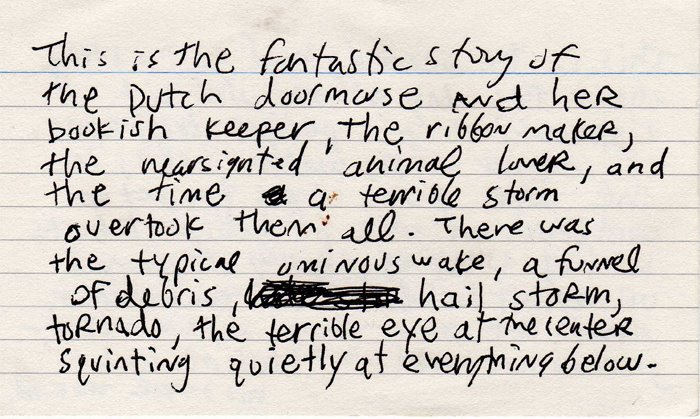 This is the fantastic story of
the Dutch doormouse and her
bookish keeper, the ribbon maker,
the nearsighted animal lover, and
the time a terrible storm
overtook them all. There was
the typical ominous wake, a funnel
of debris, hail storm,
tornado, the terrible eye at the center
squinting quietly at everything below.